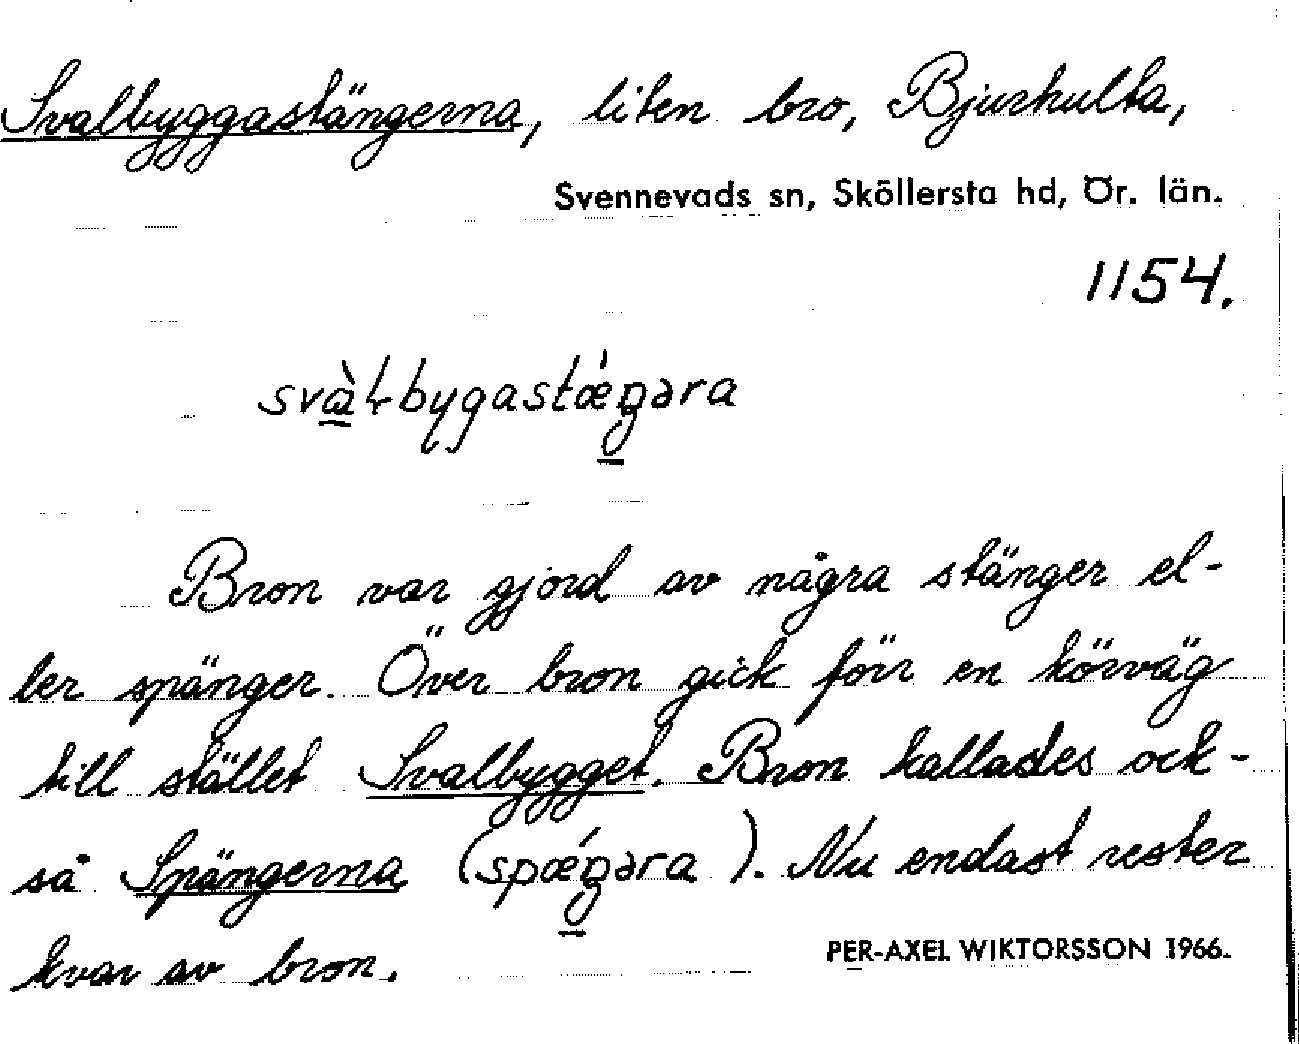 Svalbyggastängerna, liten bro, Bjurhulta,
Svennevads sn, Sköllersta hd, Ör. län.
1154.
svàɫ-bygastǽŋəra
Bron var gjord av några stänger el-
ler spänger. Över bron gick förr en körväg
till stället Svalbygget. Bron kallades ock-
så Spängerna (spǽŋəra ). Nu endast rester
kvar av bron.
PER-AXEL WIKTORSSON 1966.